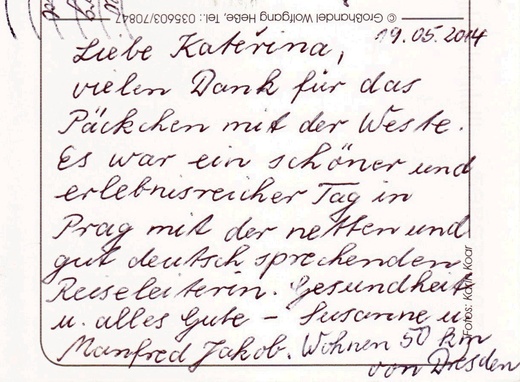 © Großhandel Wolfgang Heße, Tel.: 035603/70847
19.05.2014
Liebe Kateřina,
vielen Dank für das
Päckchen mit der Weste.
Es war ein schöner und
erlebnisreicher Tag in
Prag mit der netten und
gut deutsch sprechenden
Reiseleiterin. Gesundheit
u. alles Gute - Susanne u.
Manfred Jakob. Wohnen 50 km
von Dresden
Fotos: Karin Koar